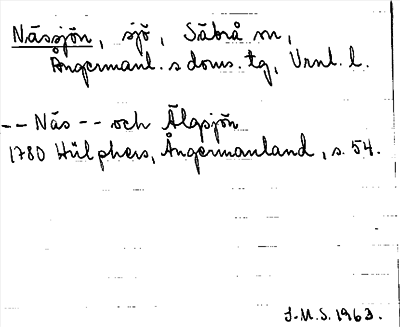 Nässjön, sjö, Säbrå sn,
Ångermanl. s doms. tg, Vrnl. l.
-- Näs -- och Älgsjön
1780 Hülphers, Ångermanland, s. 54.
J.M.S. 1963.